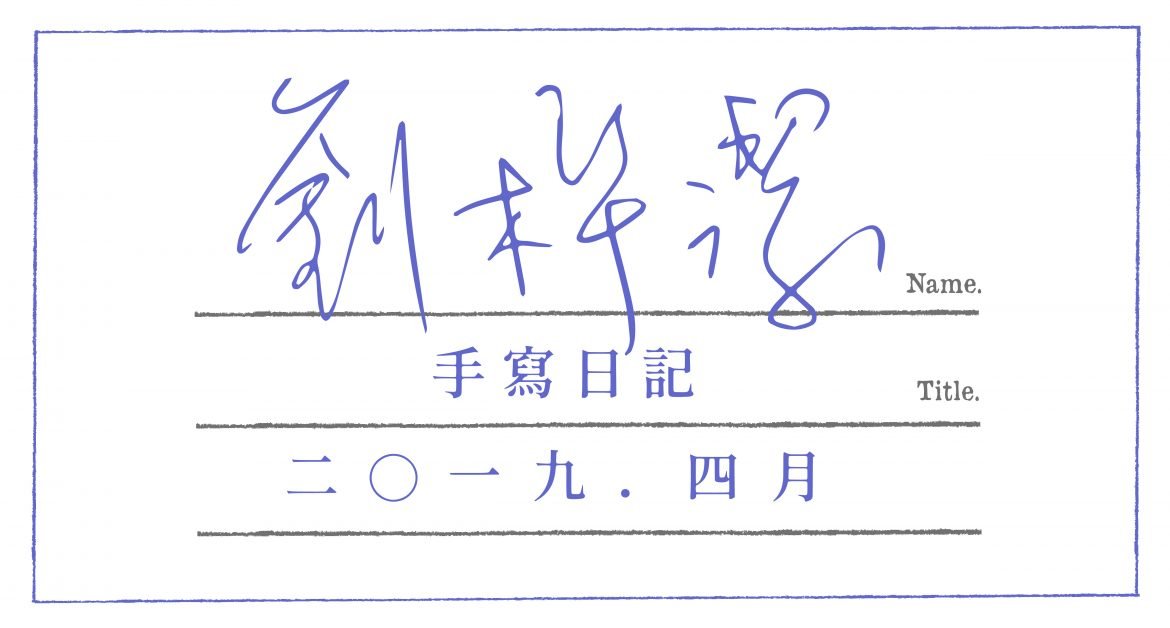 劉梓潔
Name.
手寫日記
Title.
二〇一九．四月